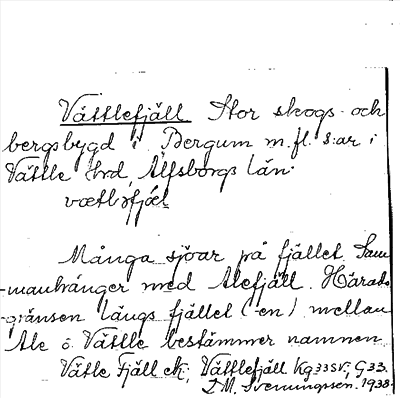 Vättlefjäll Stor skogs- och
bergsbygd i Bergum m.fl. s:ar i
Vättle Hrd, Älfsborgs län.
Många sjöar på fjället. Sam-
manhänger med Alefjäll. Härads-
gränsen längs fjället (-en) mellan
Ale o. Vättle bestämmer namnen.
Vätle Fjäll ek; Vättlefjäll Kg 33 SV, G 33.
Svenungsson. 1938